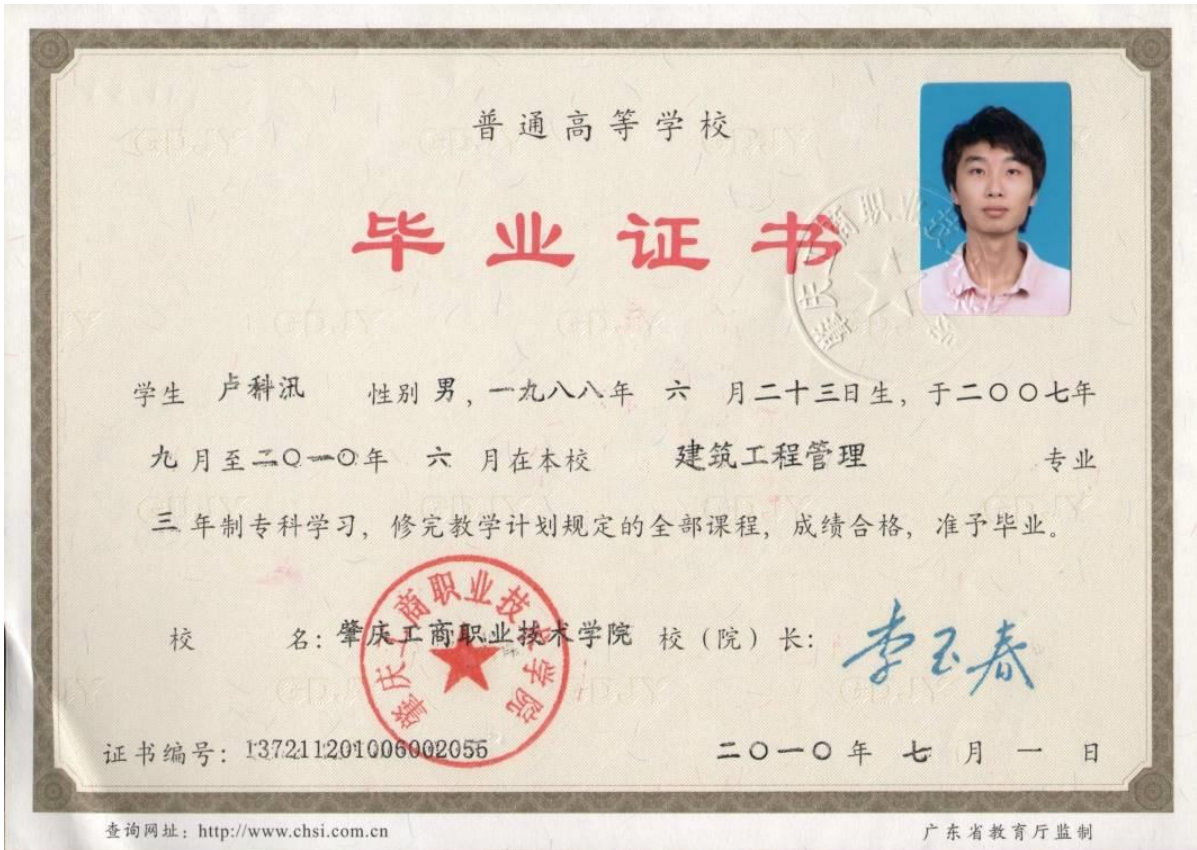 普通高等学校
毕业证书
学生 卢科汛 性别 男，一九八八年 六 月二十三日生，于二〇〇七年
九月至二〇一〇年 六 月在本校 建筑工程管理 专业
三 年制专科学习，修完教学计划规定的全部课程，成绩合格，准予毕业。
校 名：肇庆工商职业技术学院 校（院）长：李玉春
肇庆工商职业技术学院
证书编号：137211201006002056 二〇一〇年 七 月 一 日
查询网址：http://www.chsi.com.cn 广东省教育厅监制